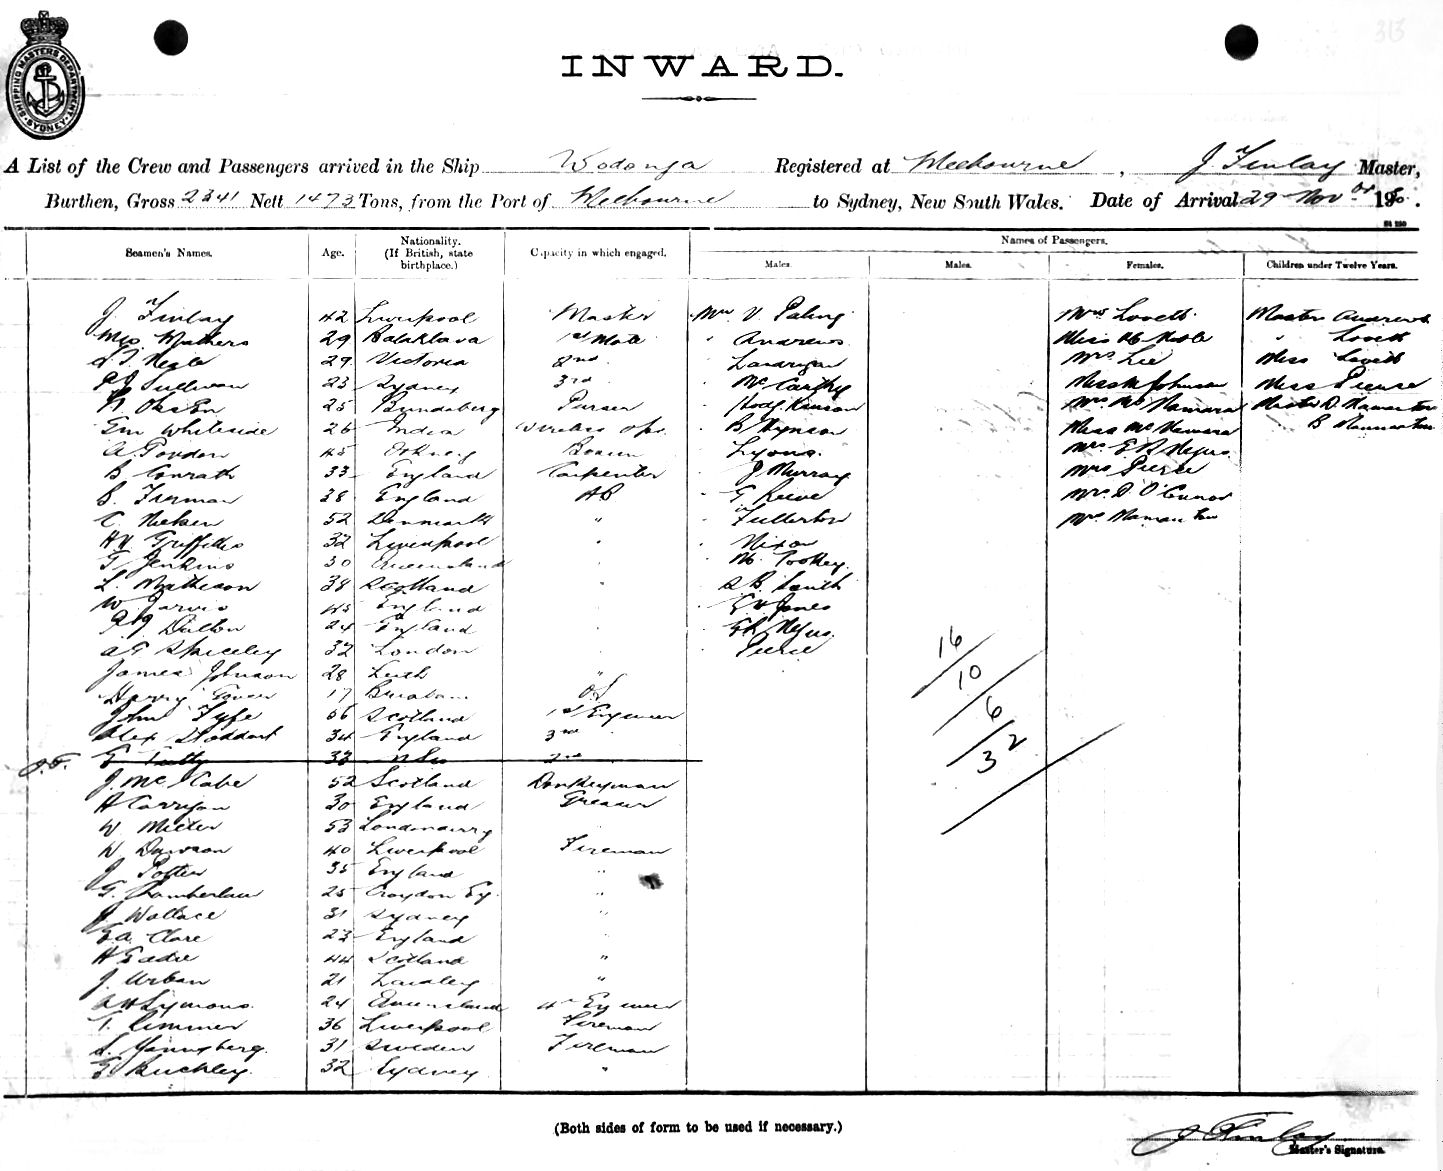 SHIPPING MASTERS DEPARTMENT · SYDNEY ·
313
INWARD.
A List of the Crew and Passengers arrived in the Ship Wodonga Registered at Melbourne, J. Finlay Master,
Burthen, Gross 2341 Nett 1473 Tons, from the Port of Melbourne to Sydney, New South Wales. Date of Arrival 29 Nov 19
Seamen's Names. Age. Nationality. (If British, state birthplace.) Capacity in which engaged. Names of Passengers.
Males. Males. Females. Children under Twelve Years.
J. Finlay 42 Liverpool Master Mr V. Paling Mrs Lovett Master Andrews
Mathers 29 Balaklava 1st Mate " Andrews Miss " Lovett
29 Victoria 2nd Landrigan Mrs Lee Miss Lovett
Sullivan 23 Sydney 3rd McCarthy Miss M Johnson Miss Pierse
25 Bundaberg Purser Hodgkinson Mrs McNamara Master D.
Em Whiteside 26 India Wireless Opr. B Hynson Miss McNamara B
A. 45 Orkney Bosun Lyons Mrs E R Negus
B Conrath 33 England Carpenter J Murray Mrs Pierse
S. 38 England AB G Reeve Mrs D O'Connor
C. Nielsen 52 Denmark " Fullerton Mrs
HV Griffiths 32 Liverpool " Nixon
T Jenkins 30 Queensland Tookey
L. Matheson 38 Scotland " S B Smith
W Jarvis 45 England E H Jones
Dutton 24 England Negus 16
A E Spiceley 32 London Pierse 10
James Johnson 28 Leith " 6
Harry 17 Brisbane OS 32
John Fyfe 56 Scotland 1st Engineer
Alex Stoddart 34 England 3rd "
J.F. G Tully 33 NSW 2nd
J. McCabe 52 Scotland Donkeyman
H Corrigan 30 England Greaser
W. Miller 53 Londonderry
W Dawson 40 Liverpool Fireman
J Potter 35 England "
G. Chamberlain 25 Croydon Eg. "
J Wallace 31 Sydney "
E A Clare 23 England "
H Eadie 44 Scotland "
J Urban 21 Laidley "
A H Symons 24 Queensland 4th Engineer
T. Rimmer 36 Liverpool Fireman
S. Youngberg 31 Sweden Fireman
E Buckley 32 Sydney "
(Both sides of form to be used if necessary.)
J Finlay
Master's Signature.